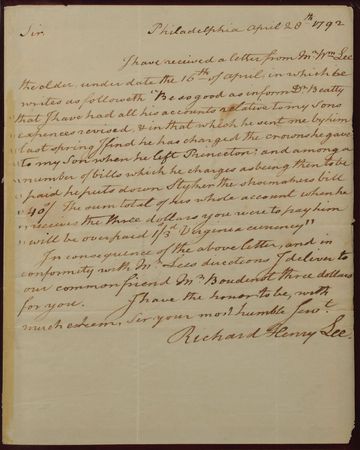 Sir,
Philadelphia April 28th 1792
I have received a letter from Mr. Wm. Lee
the older, under date the 16th of april, in which he
writes as followeth "Be so good as inform Dr. Beatty
that I have had all his accounts relative to my Sons
expences revised, & in that which he sent me by him
last spring I find he has charged the crowns he gave
to my Son when he left Princeton; and among a
number of bills which he charges as being then to be
paid he puts down Stryker the shoemakers bill
40/. The sum total of his whole account when he
receives the three dollars you were to pay him
will be overpaid 1/3d Virginia currency"
In consequence of the above letter, and in
conformity with Mr. Lees directions I deliver to
our common friend Mr. Boudenot three dollars
for you. I have the honor to be, with
much esteem, Sir your most humble Servt.
Richard Henry Lee.